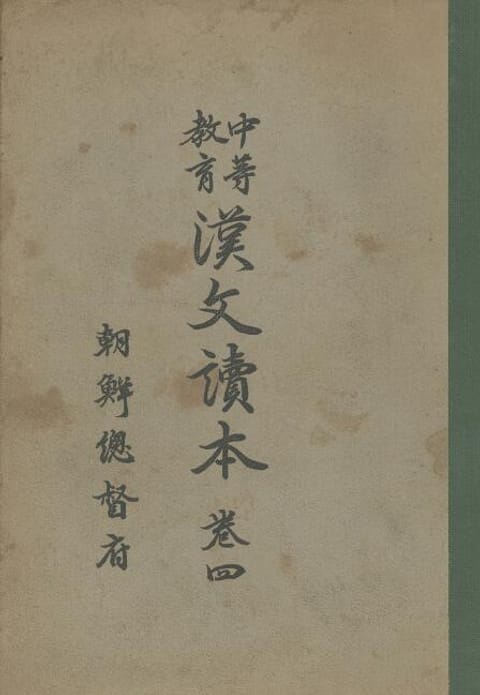 中等
教育
漢文讀本 卷四
朝鮮總督府